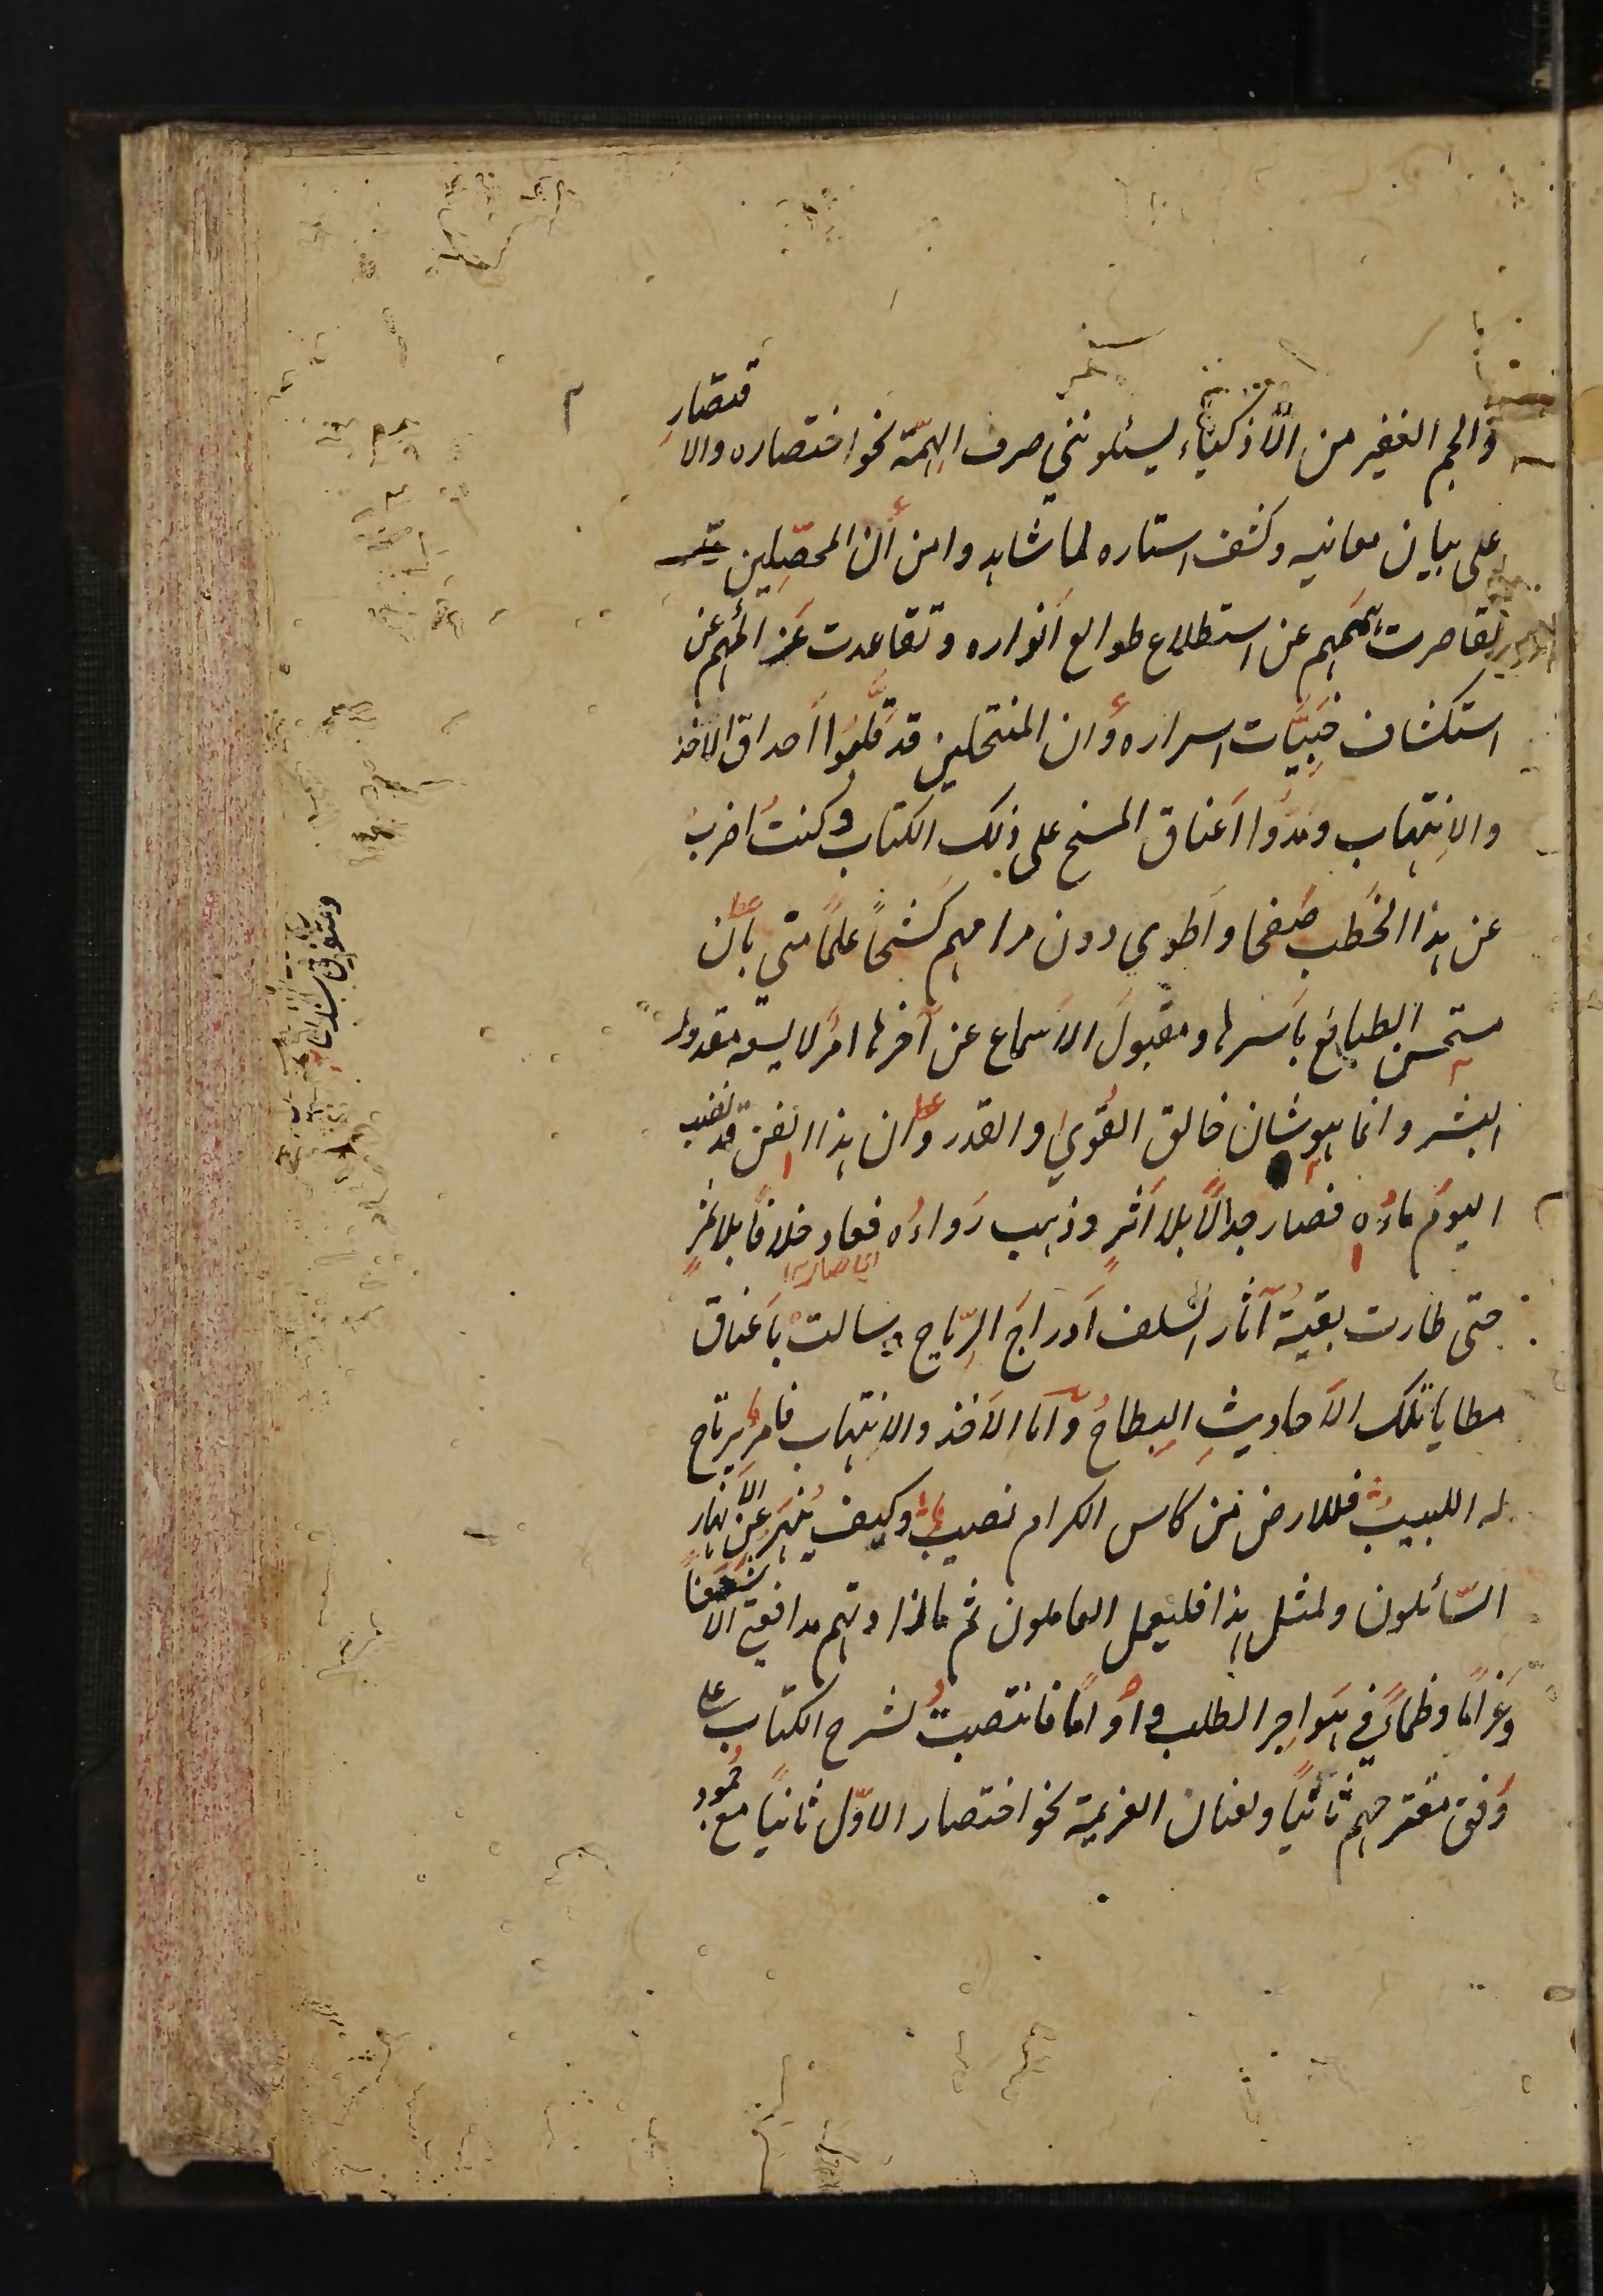 والجم الغفير من الأذكياء يسئلونني صرف الهمّة نحو اختصاره والاقتصارِ
على بيان معانيه وكشف استاره لما شاهدوا من أن المحصّلين قد
تقاصرت هممهم عن استطلاع طوالع أنواره وتقاعدت عزائمهم عن
استكشاف خبيّات اسراره وأن المنتحلين قد قلّبوا أحداق الأخذ
والانتهاب ومدّوا أعناق المسخ على ذلك الكتاب وكنتُ اضربُ
عن هذا الخطب صفحا وأطوي دون مرامهم كشحاً علماً منّي بأن
مستحسن الطبائع بأسرها ومقبولَ الأسماع عن آخرها امرٌ لا يسعه مقدرة
البشر وانما هو شان خالق القُوى والقدر وان هذا الفن قد نضب
اليوم ماؤه فصار جدالاً بلا أثرٍ وذهب رَواءُه فعاد خلافاً بلا ثمرٍ
اي صار
حتى طارت بقيةُ آثار السّلف أدراجَ الرّياح وسالت بأعناق
مطايا تلك الأحاديثِ البِطاحُ وأمّا الأخذ والانتهاب فامرٌ يرتاح
له اللبيبُ فللارض من كاس الكرام نصيبٌ وكيف يُنهَر عن الأنهار
السّائلون ولمثل هذا فليعمل العاملون ثم ما زادتهم مدافعتي الا شغفاً
وغراماً وظماءً في هواجر الطلب وأُواماً فانتصبتُ لشرح الكتاب على
وُفق مقترحهم ثانياً ولعنان العزيمة نحو اختصار الأوّل ثانياً مع جمود